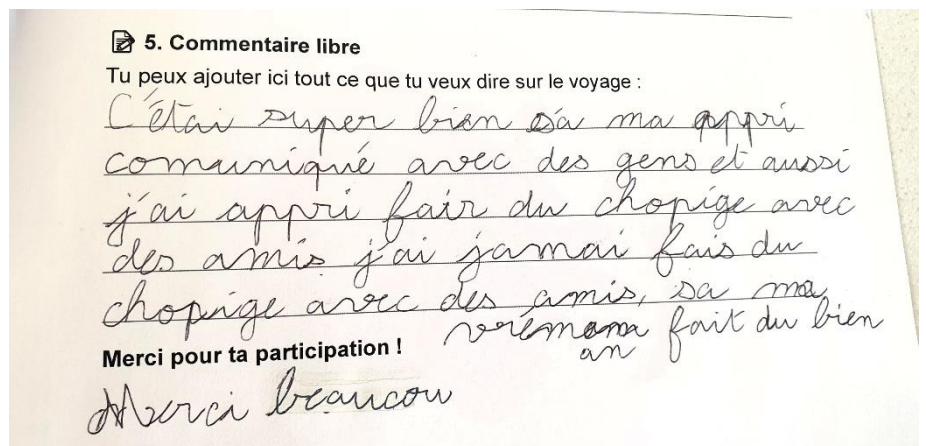 5. Commentaire libre
Tu peux ajouter ici tout ce que tu veux dire sur le voyage :
C'étai super bien sa ma appri
comuniqué avec des gens et aussi
j'ai appri fair du chopige avec
des amis j'ai jamai fais du
chopige avec des amis, sa ma
vrémema fait du bien
an
Merci pour ta participation !
Merci beaucou